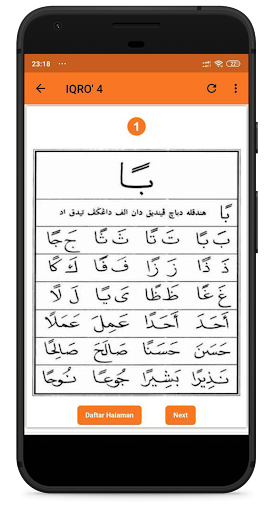 23:18 ...
IQRO' 4
1
بًا
بًا هندقله دباچ ڤنديق دان الف داڠݢڤ تيدق اد
بَ بًا تَ تًا ثَ ثًا جَ جًا
ذَ ذًا زَ زًا فَ فًا كَ كًا
غَ غًا ظَ ظًا يَ يًا لَ لًا
أَحَدَ أَحَدًا عَمِلَ عَمَلًا
حَسَنَ حَسَنًا صَالِحَ صَالِحًا
نَذِيرًا بَشِيرًا جُوعًا نُوحًا
Daftar Halaman Next